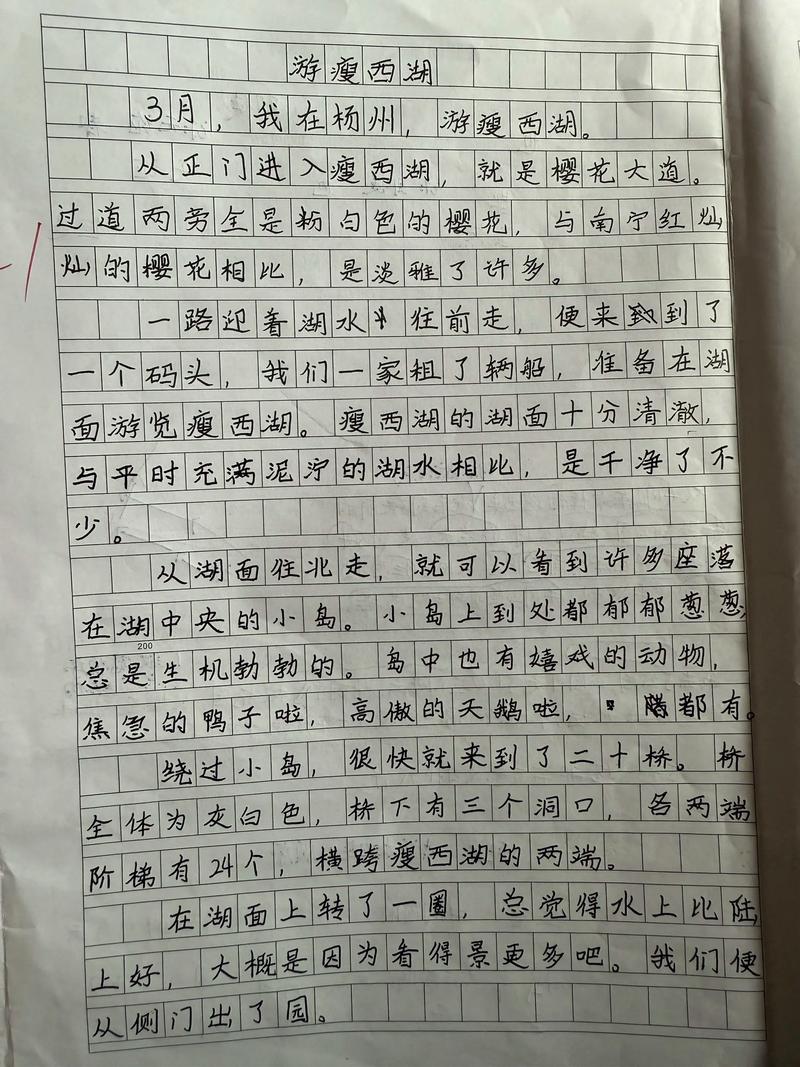 游瘦西湖
3月，我在杨州，游瘦西湖。
从正门进入瘦西湖，就是樱花大道。
过道两旁全是粉白色的樱花，与南宁红灿
灿的樱花相比，是淡雅了许多。
一路迎着湖水往前走，便来到了
一个码头，我们一家租了辆船，准备在湖
面游览瘦西湖。瘦西湖的湖面十分清澈，
与平时充满泥泞的湖水相比，是干净了不
少。
从湖面往北走，就可以看到许多座落
在湖中央的小岛。小岛上到处都郁郁葱葱，
200
总是生机勃勃的。岛中也有嬉戏的动物，
焦急的鸭子啦，高傲的天鹅啦，都有。
绕过小岛，很快就来到了二十桥。桥
全体为灰白色，桥下有三个洞口，各两端
阶梯有24个，横跨瘦西湖的两端。
在湖面上转了一圈，总觉得水上比陆
上好，大概是因为看得景更多吧。我们便
从侧门出了园。